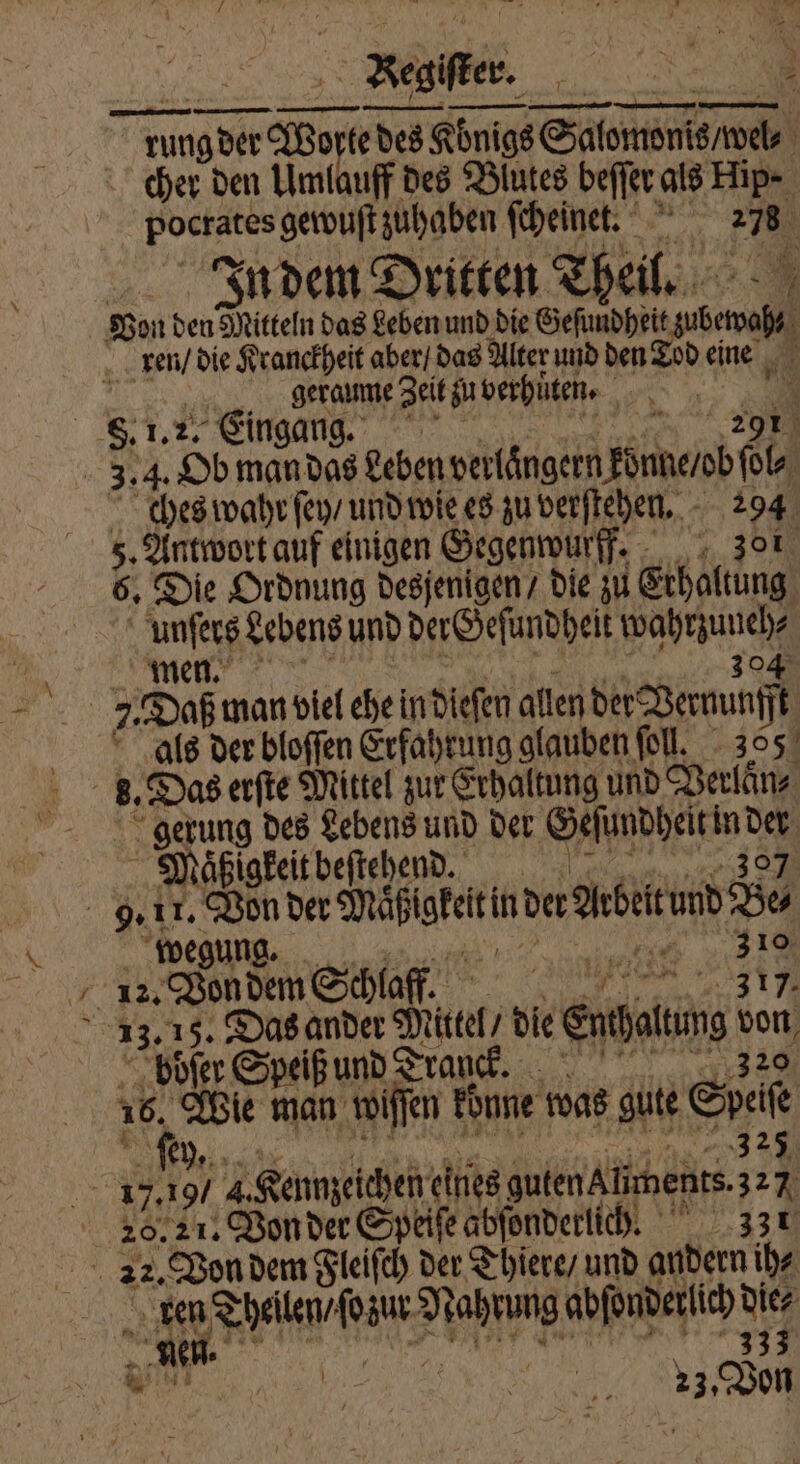 Regiſter.
rung der Worte des Koͤnigs Salomonis/wel⸗
cher den Umlauff des Blutes beſſer als Hip-
pocrates gewuſt zuhaben ſcheinet. 278
In dem Dritten Theil.
Von den Mitteln das Leben und die Geſundheit zubewah⸗
ren/ die Kranckheit aber/ das Alter und den Tod eine
geraume Zeit zu verhuͤten.
§. 1. 2. Eingang. 291
3. 4. Ob man das Leben verlaͤngern koͤnne/ob ſol⸗
ches wahr ſey/ und wie es zu verſtehen. 294
5. Antwort auf einigen Gegenwurff. 301
6. Die Ordnung desjenigen/ die zu Erhaltung
unſers Lebens und der Geſundheit wahrzuneh⸗
men. 304
7. Daß man viel ehe in dieſen allen der Vernunfft
als der bloſſen Erfahrung glauben ſoll. 305
8. Das erſte Mittel zur Erhaltung und Verlaͤn⸗
gerung des Lebens und der Geſundheit in der
Maͤßigkeit beſtehend. 307
9. 11. Von der Maͤßigkeit in der Arbeit und Be⸗
wegung. 310
12. Von dem Schlaff. 317.
13. 15. Das ander Mittel/ die Enthaltung von
boͤſer Speiß und Tranck. 320
16. Wie man wiſſen koͤnne was gute Speiſe
ſey. 325
17. 19/ 4. Kennzeichen eines guten Aliments. 327
20. 21. Von der Speiſe abſonderlich. 331
22. Von dem Fleiſch der Thiere/ und andern ih⸗
ren Theilen/ſo zur Nahrung abſonderlich die⸗
nen. 333
23. Von